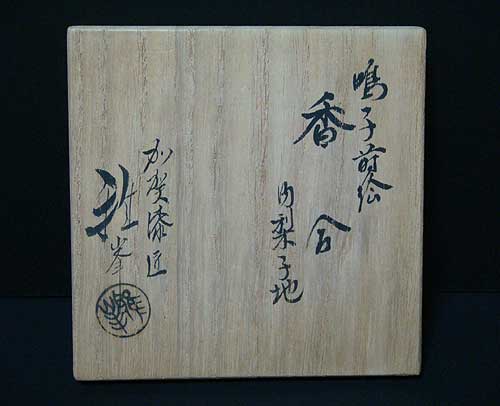 鳴子蒔絵
香合
内梨子地
加賀漆匠